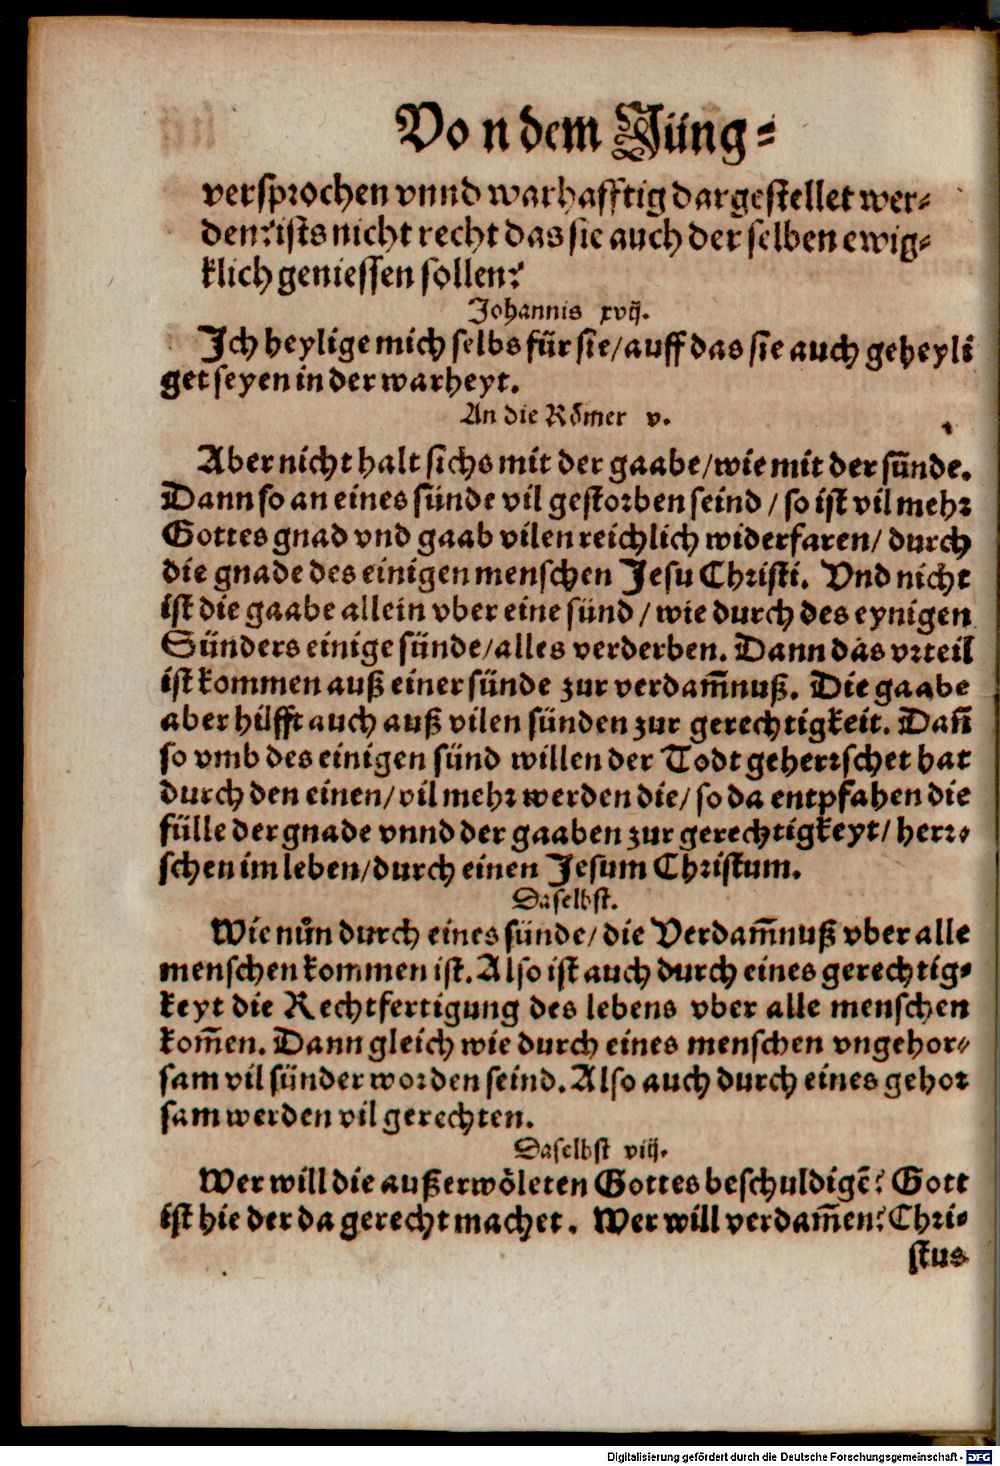 Vo n dem Jüng⸗
versprochen vnnd warhafftig dargestellet wer⸗
den? ists nicht recht das sie auch der selben ewig⸗
klich geniessen sollen?
Johannis xvij.
Ich heylige mich selbs für sie/ auff das sie auch geheyli
get seyen in der warheyt.
An die Römer v.
Aber nicht halt sichs mit der gaabe/ wie mit der sünde.
Dann so an eines sünde vil gestorben seind/ so ist vil mehr
Gottes gnad vnd gaab vilen reichlich widerfaren/ durch
die gnade des einigen menschen Jesu Christi. Vnd nicht
ist die gaabe allein vber eine sünd/ wie durch des eynigen
Sünders einige sünde/ alles verderben. Dann das vrteil
ist kommen auß einer sünde zur verdam̄nuß. Die gaabe
aber hilfft auch auß vilen sünden zur gerechtigkeit. Dan̄
so vmb des einigen sünd willen der Todt geherrschet hat
durch den einen/ vil mehr werden die/ so da entpfahen die
fülle der gnade vnnd der gaaben zur gerechtigkeyt/ herr⸗
schen im leben/ durch einen Jesum Christum.
Daselbst.
Wie nůn durch eines sünde/ die Verdam̄nuß vber alle
menschen kommen ist. Also ist auch durch eines gerechtig⸗
keyt die Rechtfertigung des lebens vber alle menschen
kom̄en. Dann gleich wie durch eines menschen vngehor⸗
sam vil sünder worden seind. Also auch durch eines gehor
sam werden vil gerechten.
Daselbst viij.
Wer will die außerwöleten Gottes beschuldigē? Gott
ist hie der da gerecht machet. Wer will verdam̄en? Chri⸗
stus
Digitalisierung gefördert durch die Deutsche Forschungsgemeinschaft - DFG